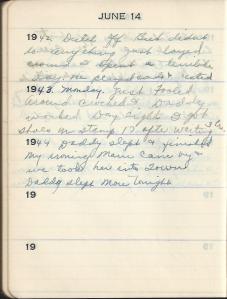 JUNE 14
1942. Dutch off But didnt
do anything just layed
around & spent a terrible
Day. He played cards & rested
1943. Monday. Just fooled
around crocheted. Daddy
worked Day Light I got
shoes on stamp 17 after waiting 3 hrs
1944 Daddy slept & finished
My ironing Marie came by &
we took her into Town
Daddy slept more Tonight
19
19